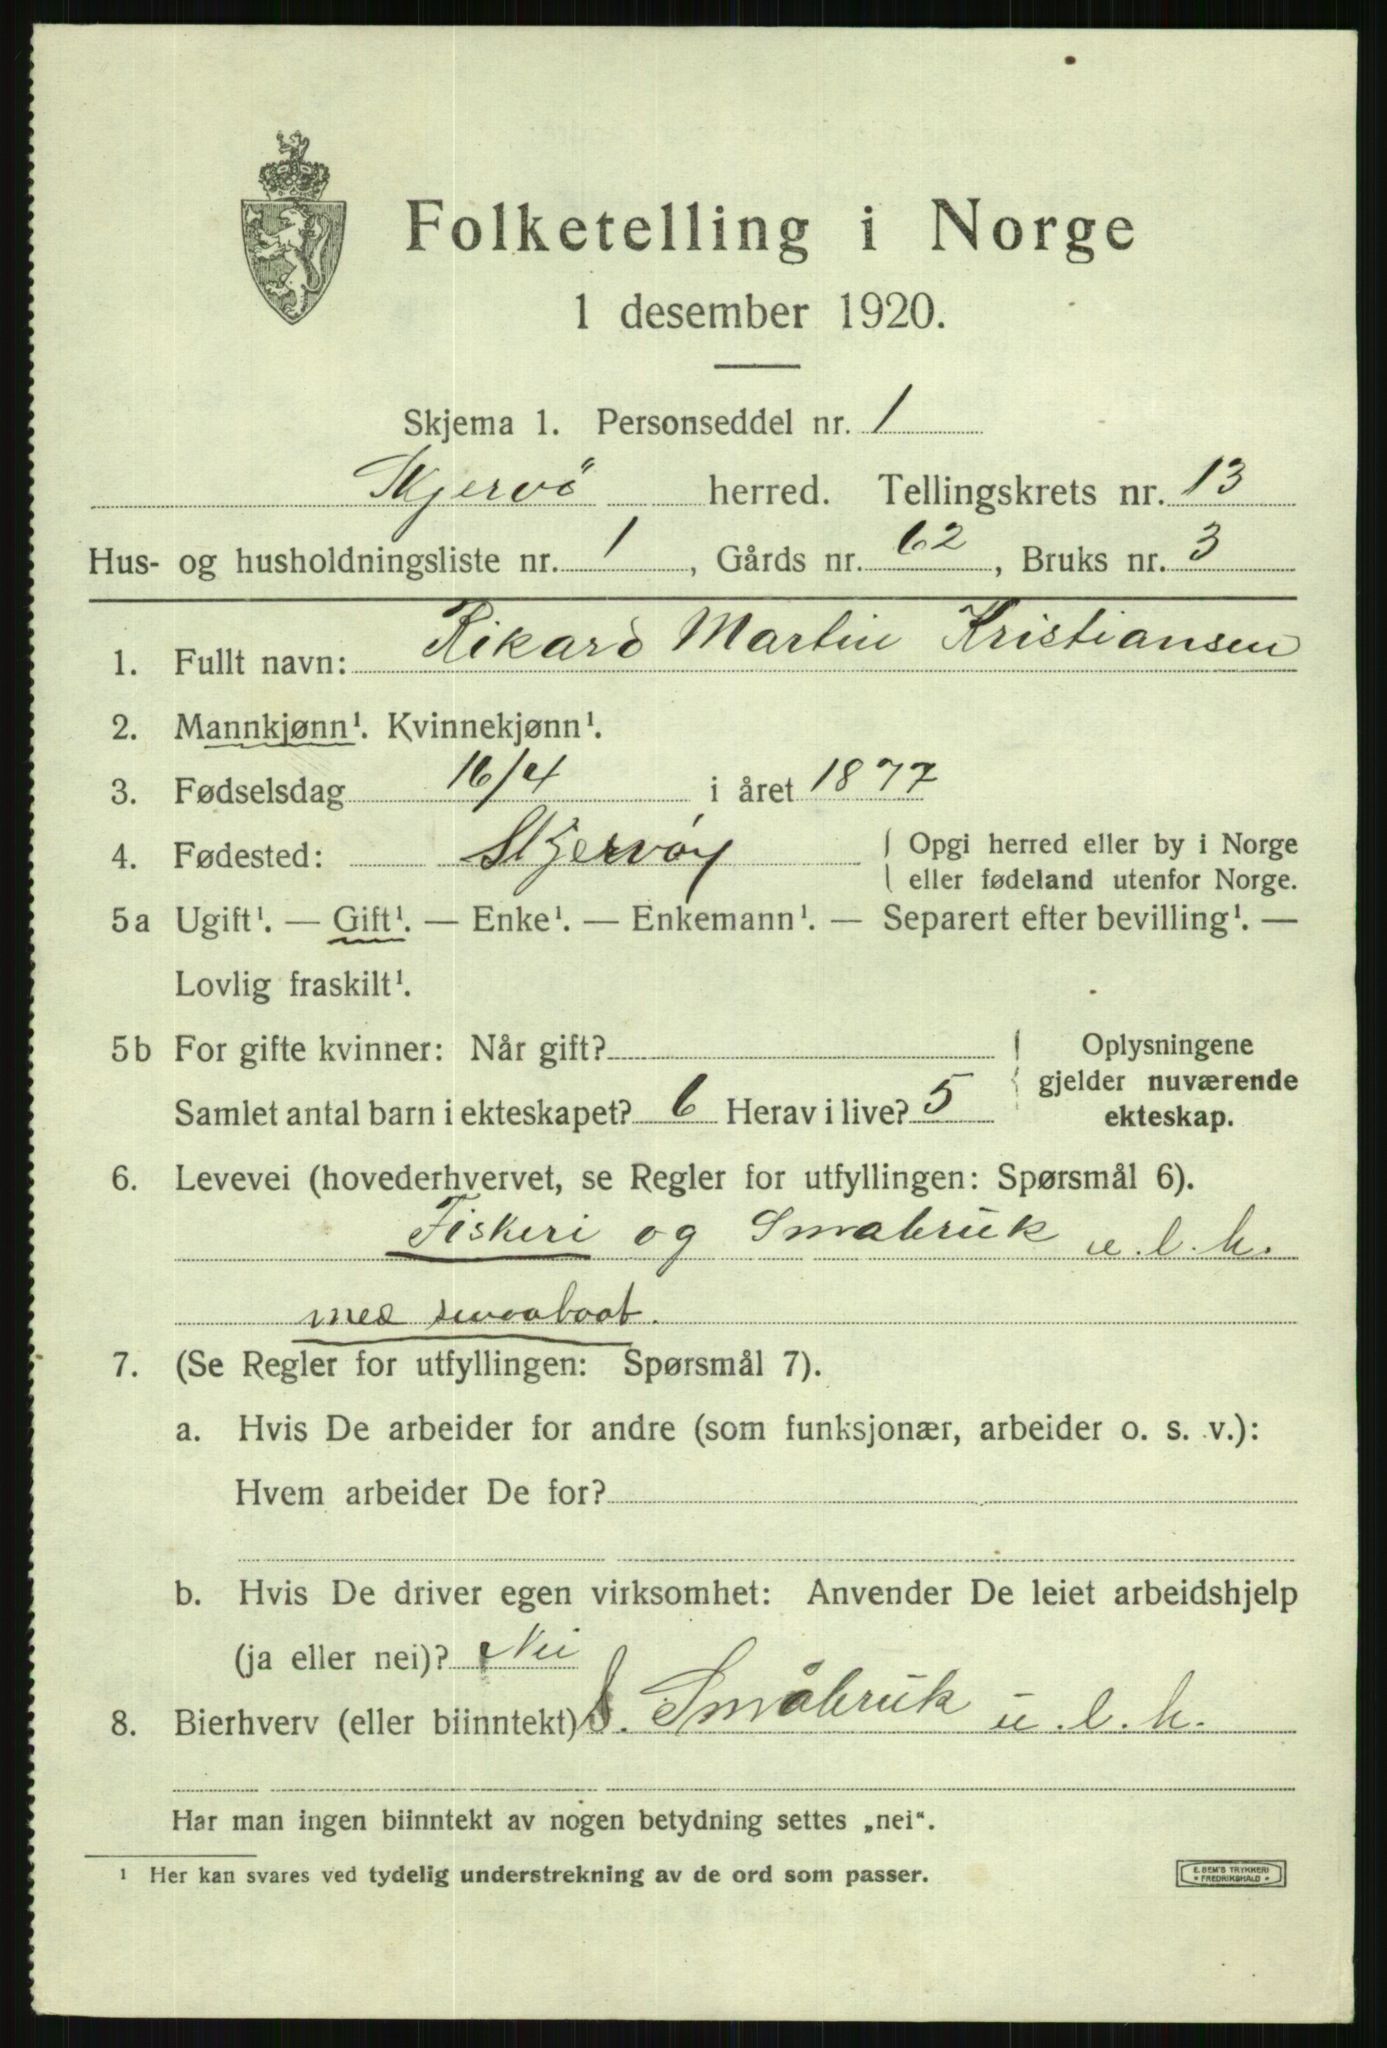 Folketelling i Norge
1 desember 1920.
Skjema 1. Personseddel nr. 1
Skjervö herred. Tellingskrets nr. 13
Hus- og husholdningsliste nr. 1, Gårds nr. 62, Bruks nr. 3
1. Fullt navn: Rikard Martin Kristiansen
2. Mannkjønn¹. Kvinnekjønn¹.
3. Fødselsdag 16/4 i året 1877
4. Fødested: Skjervøy { Opgi herred eller by i Norge
eller fødeland utenfor Norge.
5a Ugift¹. — Gift¹. — Enke¹. — Enkemann¹. — Separert efter bevilling¹. —
Lovlig fraskilt¹.
5b For gifte kvinner: Når gift? { Oplysningene
gjelder nuværende
Samlet antal barn i ekteskapet? 6 Herav i live? 5 ekteskap.
6. Levevei (hovederhvervet, se Regler for utfyllingen: Spørsmål 6).
Fiskeri og Smabruk u. l. h.
med smaabaat.
7. (Se Regler for utfyllingen: Spørsmål 7).
a. Hvis De arbeider for andre (som funksjonær, arbeider o. s. v.):
Hvem arbeider De for?
b. Hvis De driver egen virksomhet: Anvender De leiet arbeidshjelp
(ja eller nei)? Nei
8. Bierhverv (eller biinntekt) S. Småbruk u. l. h.
Har man ingen biinntekt av nogen betydning settes „nei“.
¹ Her kan svares ved tydelig understrekning av de ord som passer.
E. SEM'S TRYKKERI
* FREDRIKSHALD *